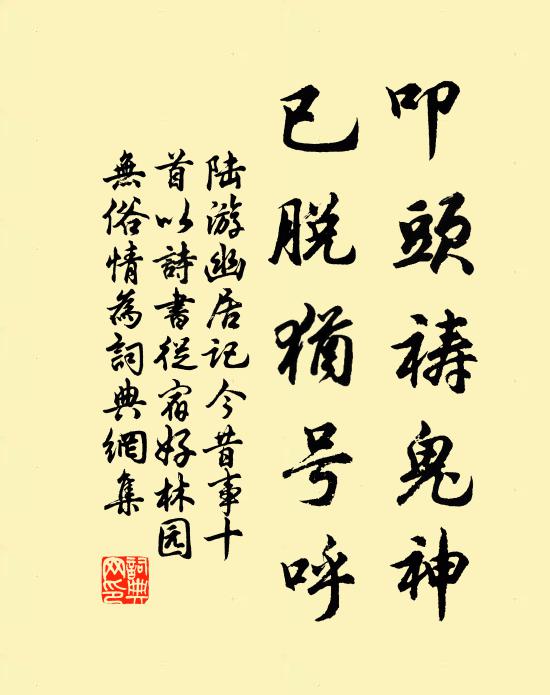 叩頭禱鬼神
已脫猶号呼
陆游幽居记今昔事十
首以詩書從宿好林园
無俗情為詞典網集
詞典网印